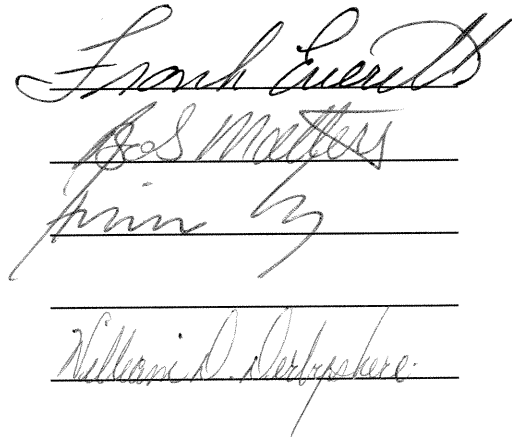 Frank Everett
Bob Matters
William D. Derbyshere